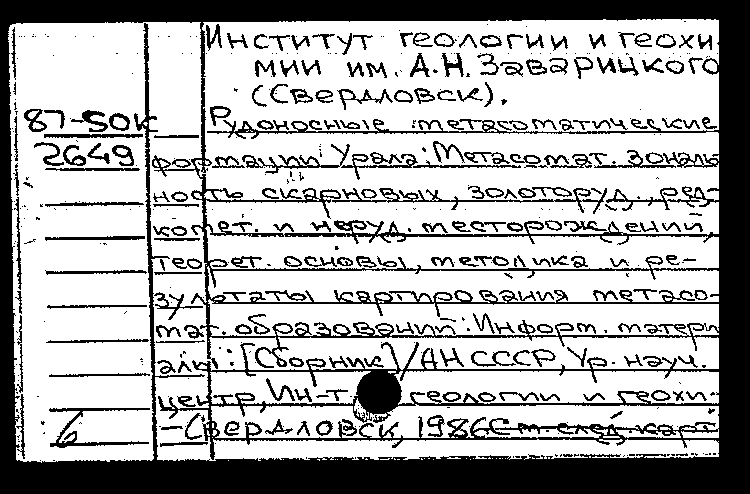 Институт геологии и геохи
мии им. А.Н. Заварицкого
(Свердловск).
87-50К Рудоносные метасоматические
2649 формации Урала: Метасомат. зональ
ность скарновых, золоторуд., ред-
комет. и неруд. месторождений,
теорет. основы, методика и ре-
зультаты картирования метасо-
мат. образований: Информ. матери
алы: [Сборник] / АН СССР, Ур. науч.
центр, Ин-т геологии и геохи-
6 -Свердловск, 1986 См. след. карт